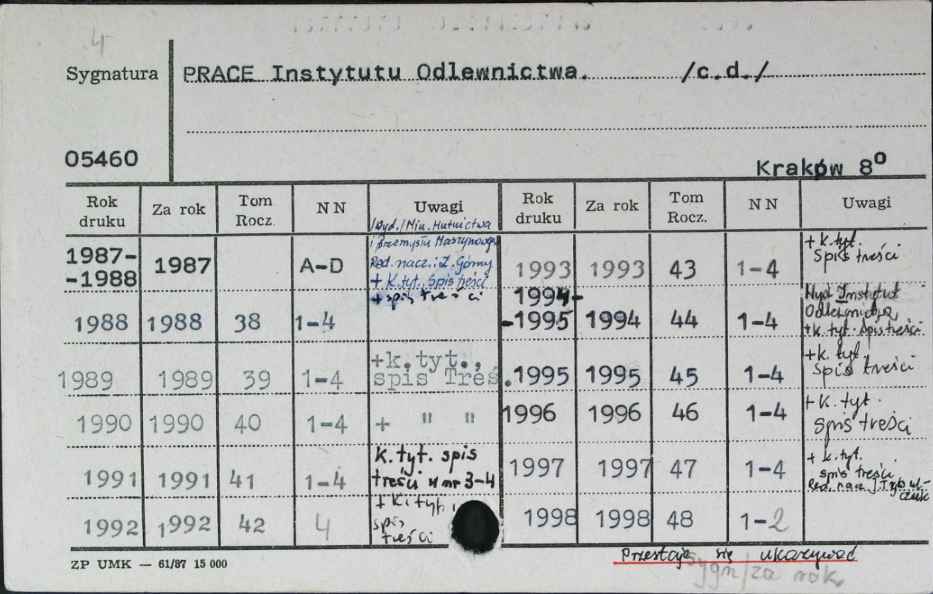 4
Sygnatura
PRACE Instytutu Odlewnictwa. /c.d./
05460
Kraków 8°
Rok druku Za rok Tom Rocz. NN Uwagi Rok druku Za rok Tom Rocz. NN Uwagi
/Wyd./Min. Hutnictwa
i Przemysłu Maszynowego
Red. nacz.: Z. Górny
+ k. tyt. spis treści
1987-
-1988 1987 A-D
1993 1993 43 1-4 + k. tyt.
spis treści
+ spis treści
1988 1988 38 1-4
1994-
-1995 1994 44 1-4 Wyd Instytut
Odlewnictwa,
+ k. tyt. spis treści.
1989 1989 39 1-4 +k.tyt.,
spis Treś.
1995 1995 45 1-4 + k. tyt
spis treści
1990 1990 40 1-4 + " "
1996 1996 46 1-4 + k. tyt.
spis treści
1991 1991 41 1-4 k. tyt. spis
treści w nr 3-4
1997 1997 47 1-4 + k. tyt.
spis treści
Red. nacz. J. Tybul-
czuk
1992 1992 42 4 + k. tyt.,
spis
treści
1998 1998 48 1-2
Przestaje się ukazywać
sygn/za rok.
ZP UMK — 61/87 15 000